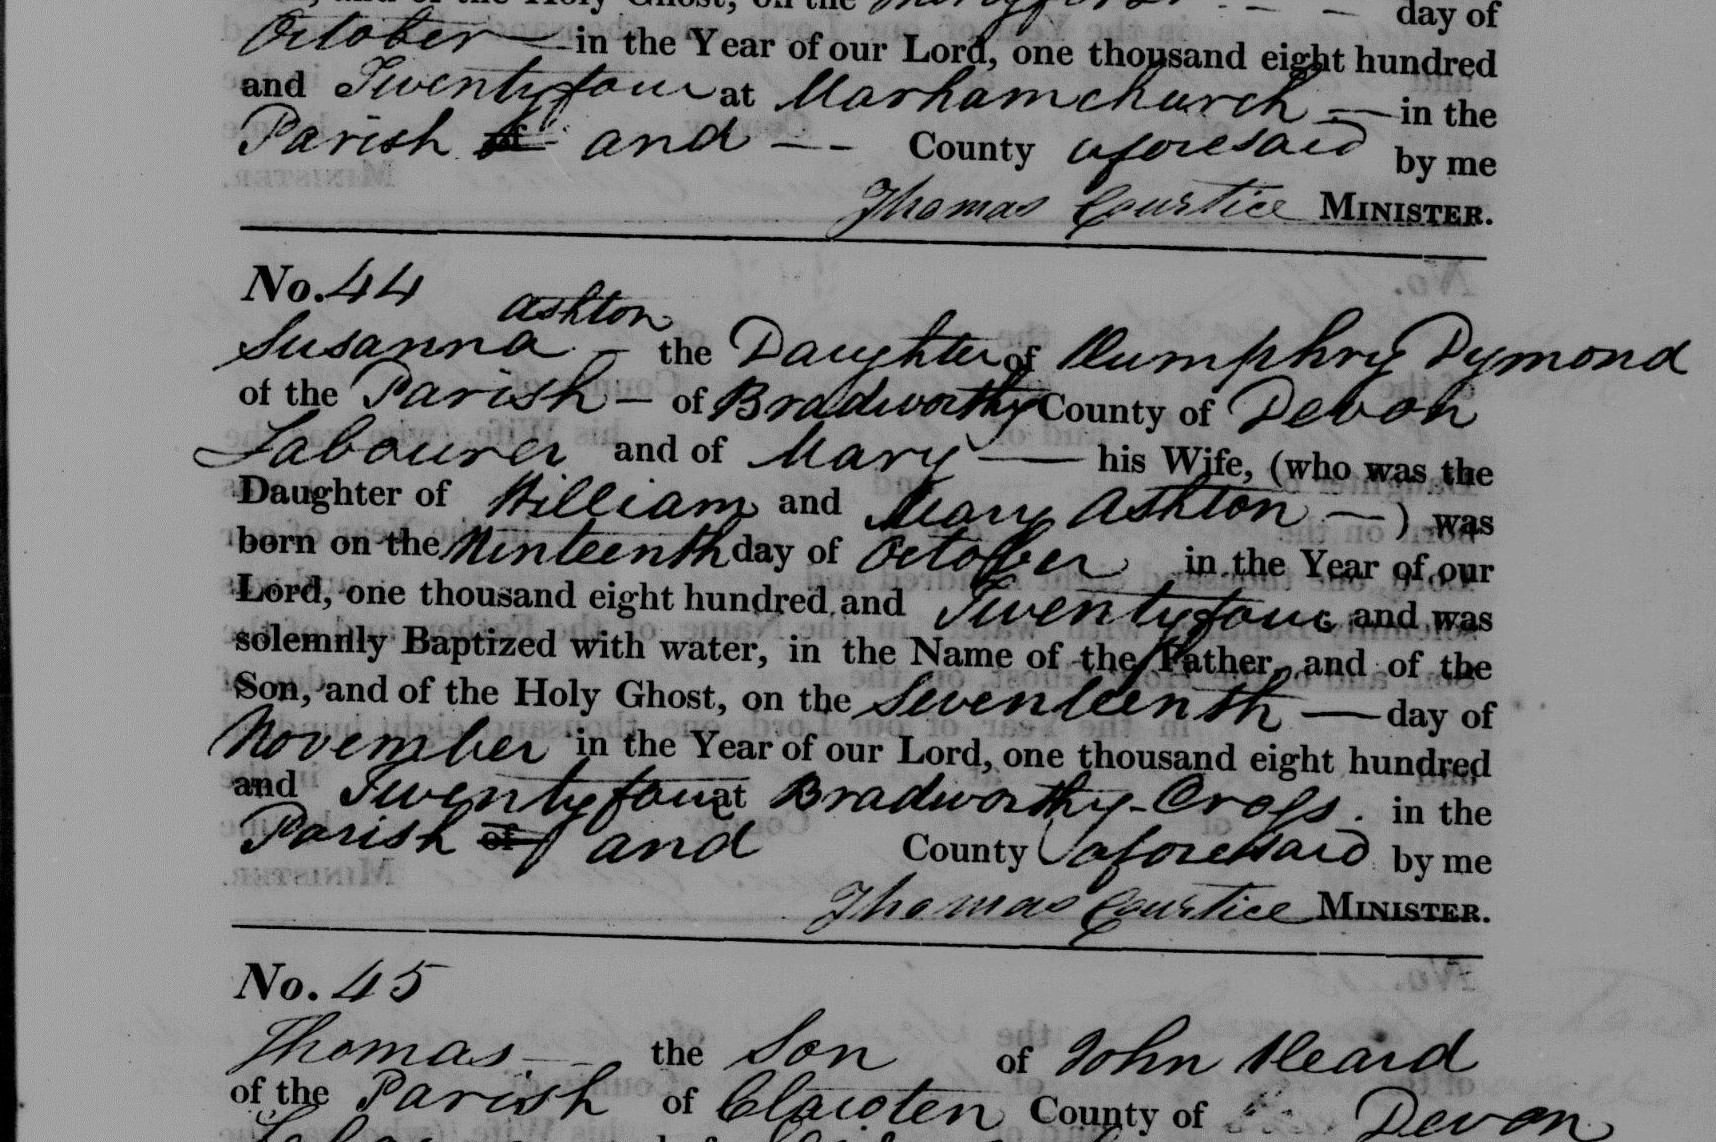 and of the Holy Ghost, on the Thirtyfirst - - - day of
October — in the Year of our Lord, one thousand eight hundred
and Twentyfour at Marhamchurch — in the
Parish of and - - County aforesaid by me
Thomas Courtice MINISTER.
No. 44
Ashton
Susanna - the Daughter of Humphry Dymond
of the Parish — of Bradworthy County of Devon
Labourer and of Mary — his Wife, (who was the
Daughter of William and Mary Ashton —) was
born on the Ninteenth day of October in the Year of our
Lord, one thousand eight hundred and Twentyfour and was
solemnly Baptized with water, in the Name of the Father, and of the
Son, and of the Holy Ghost, on the Seventeenth — day of
November in the Year of our Lord, one thousand eight hundred
and Twentyfour at Bradworthy-Cross. in the
Parish of and County aforesaid by me
Thomas Courtice MINISTER.
No. 45
Thomas — the Son of John Heard
of the Parish of Clawten County of Devon